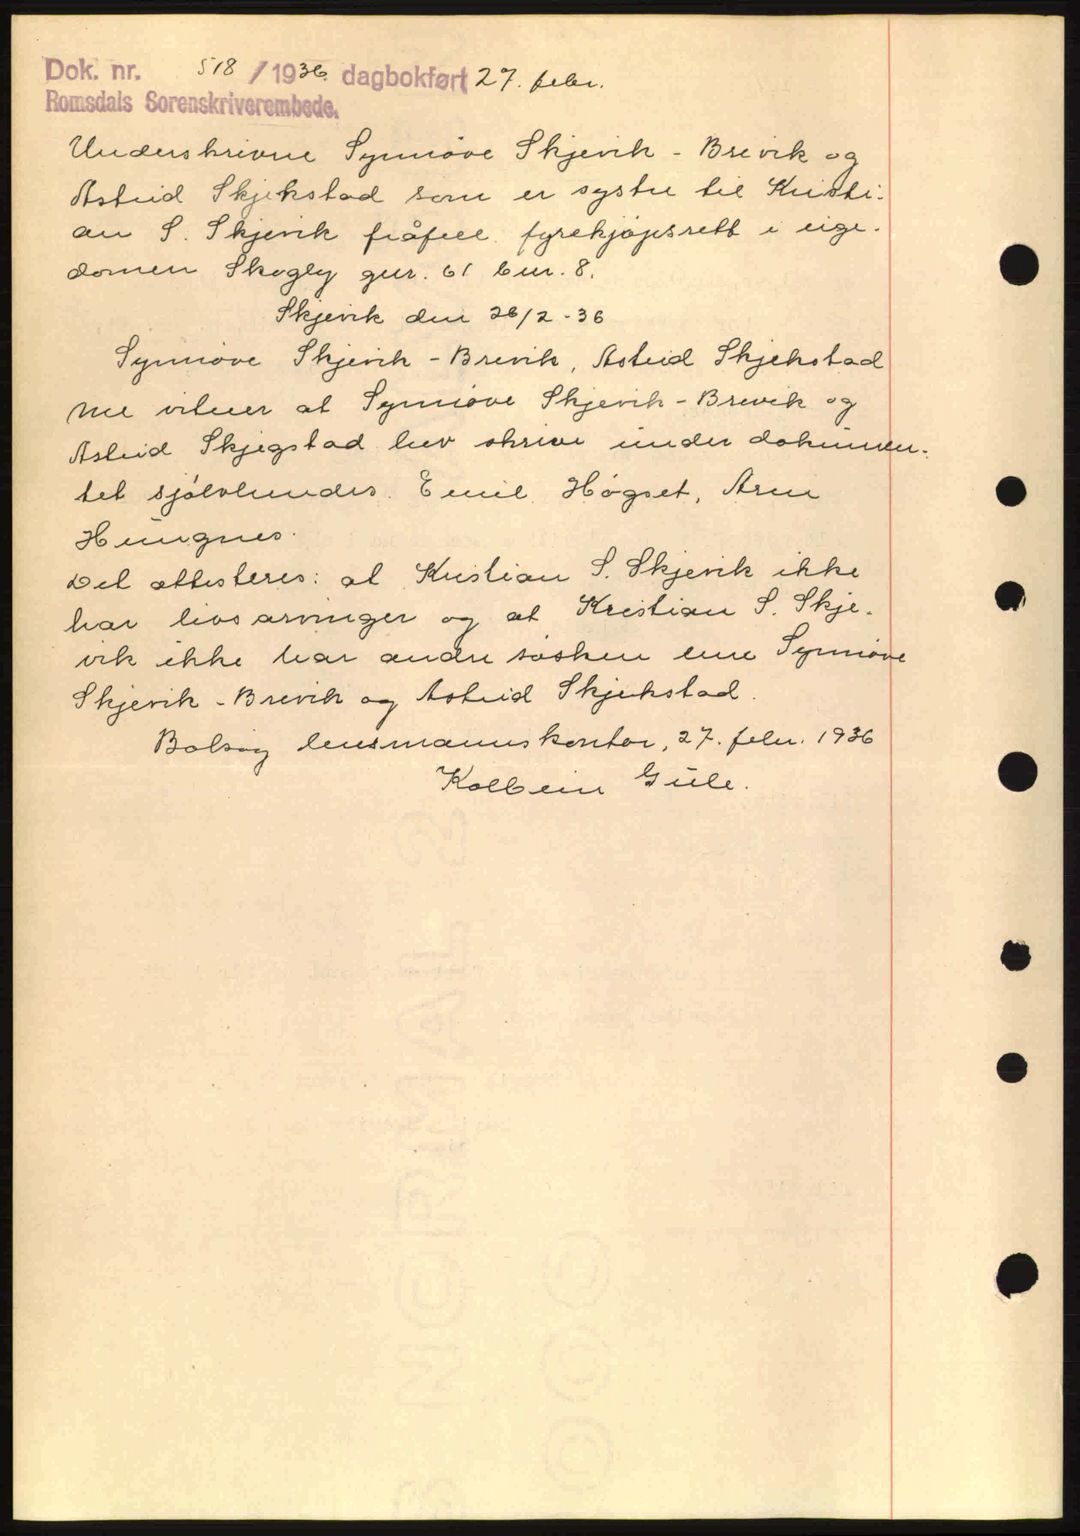 Dok. nr. 518 / 1936. dagbokført 27. febr.
Romsdals Sorenskriverembede.
Underskrivne Synnöve Skjevik - Brevik og
Astrid Skjekstad som er systre til Kristi-
an S. Skjevik fråfell fyrekjøpsrett i eige-
domen Skogly gnr. 61 bnr. 8.
Skjevik den 26/2 - 36
Synnöve Skjevik - Brevik, Astrid Skjekstad
Me vitner at Synnöve Skjevik - Brevik og
Astrid Skjegstad hev skrive under dokumen-
tet sjølvhendes. Emil Høgset, Arne
Hungnes.
Det attesteres: at Kristian S. Skjevik ikke
har livsarvinger og at Kristian S. Skje-
vik ikke har andre søsken enn Synnöve
Skjevik - Brevik og Astrid Skjekstad.
Bolsøy lensmannskontor, 27. febr. 1936
Kolbein Gule.